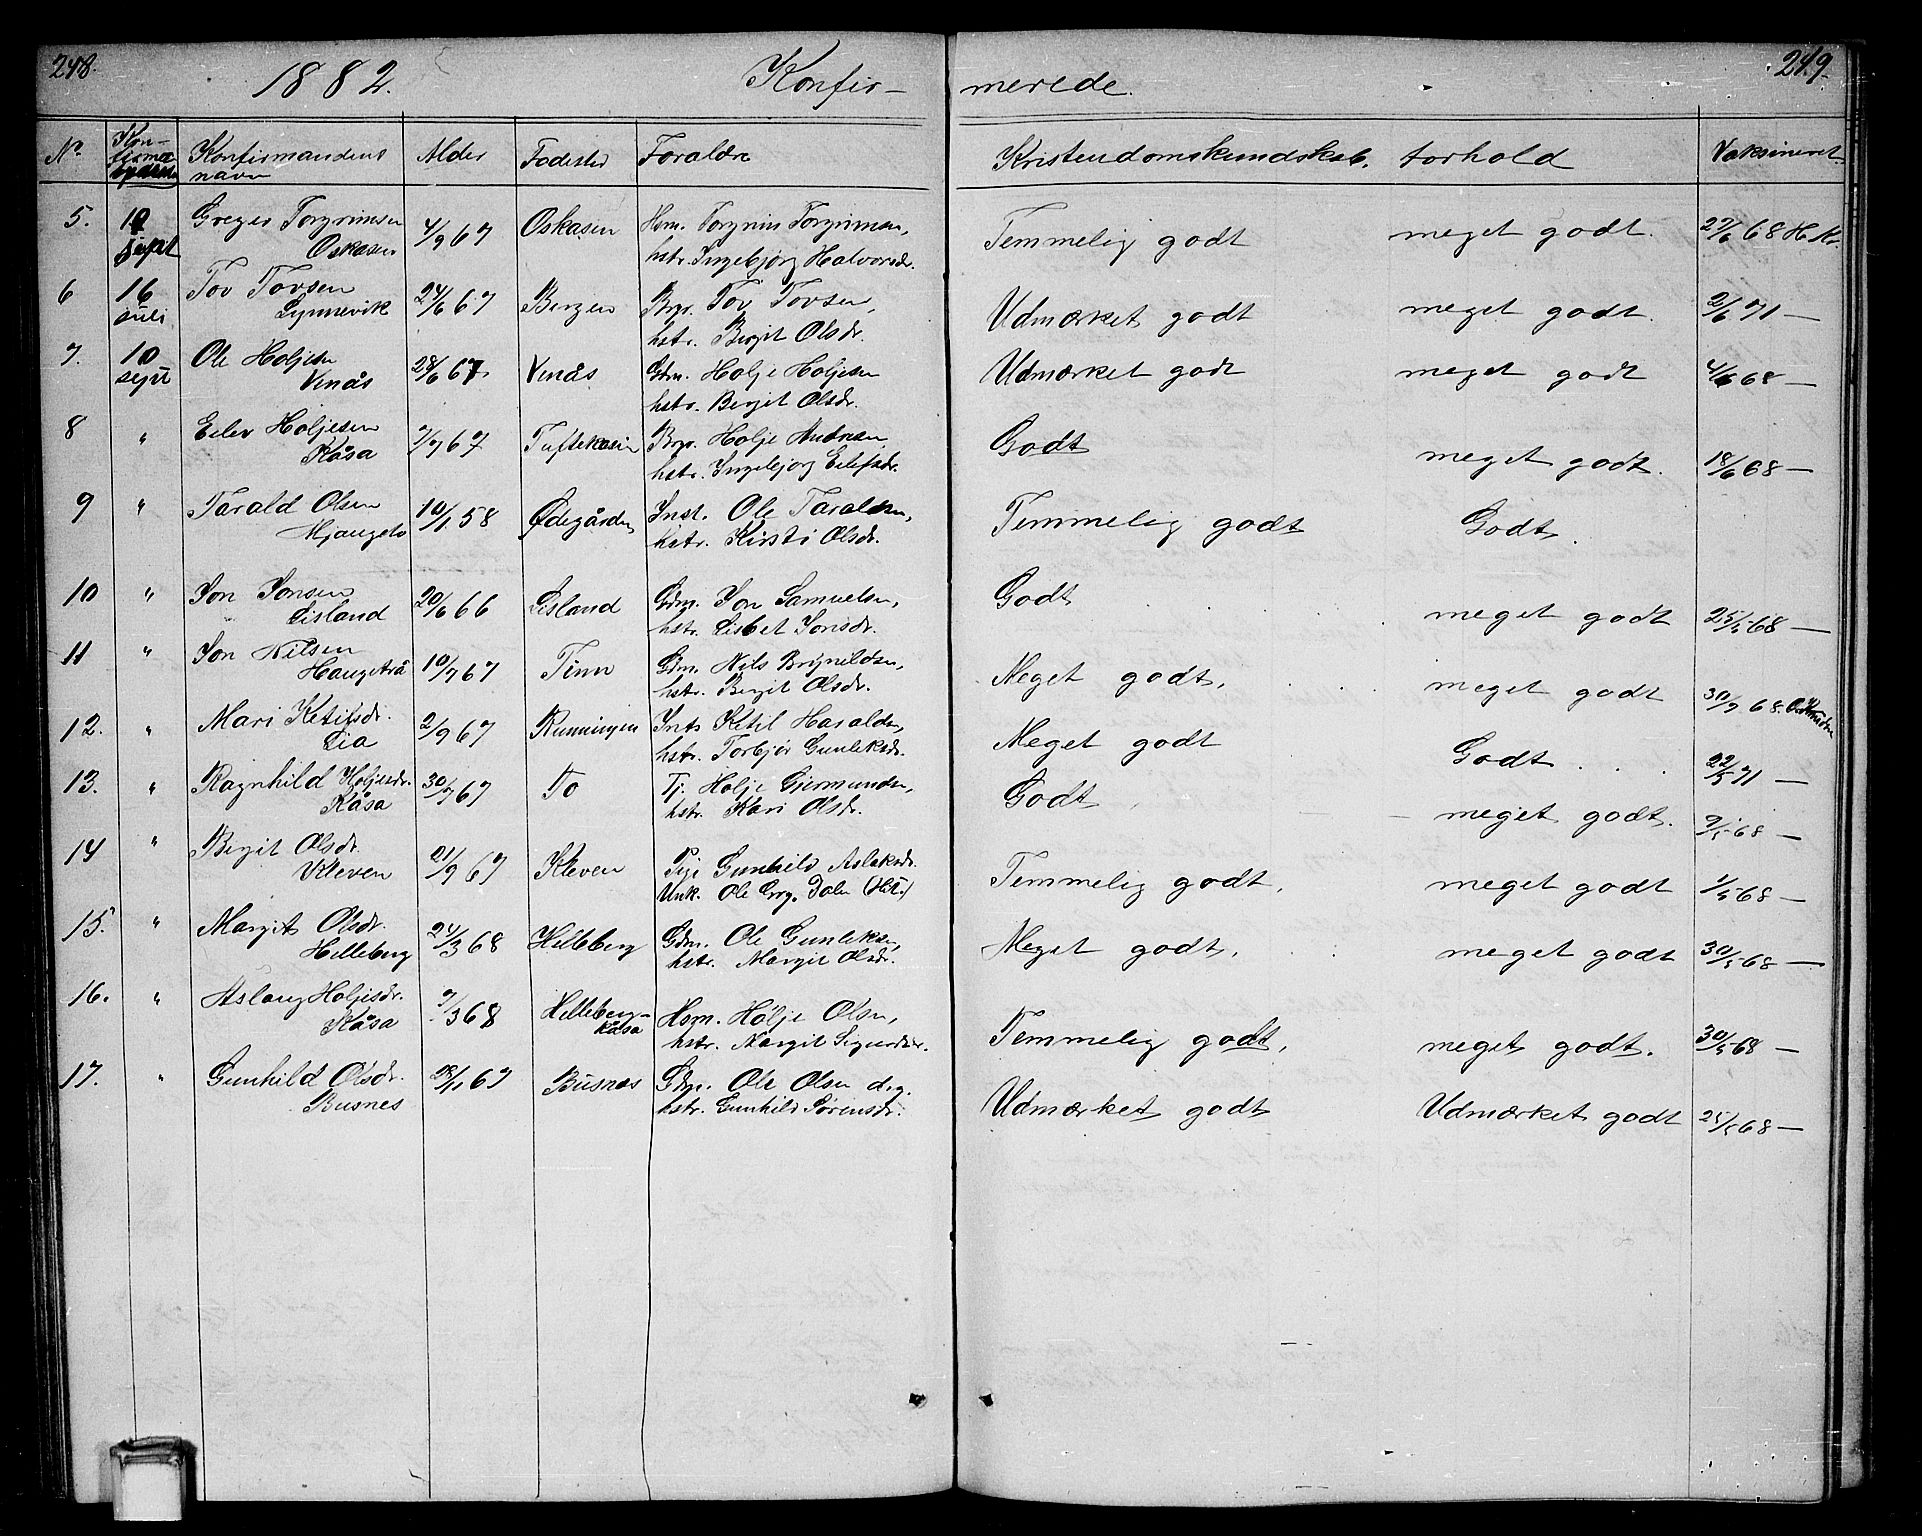 248.
1882.
Konfir-
merede.
249.
No.
Konfirmandens navn
Alder
Fødested
Forældre
Kristendomskundskab.
forhold
Vaksineret
5.
Sept
Oskasen
4/9 67
Oskasen
Hsm.
hstr. Ingebjørg Halvorsdr.
Temmelig godt
meget godt.
6
16 Juli
Tov Tovsen
Lynnevik
24/6 67
Bergen
Brgr. Tov Tovsen,
hstr. Birgit Olsdr.
Udmærket godt
meget godt.
2/6 71 —
7.
10 sept
Ole Holjesen
Venås
28/6 67.
Venås
Gdm. Holje Holjesen
hstr. Bergit Olsdr.
Udmærket godt
meget godt
68 —
8
"
Eilev Holjesen
Kåsa
67
Tuftekasin
Brgr. Holje Andresen
hstr. Ingebjorg Eilefsdr.
Godt
meget godt.
18/6 68 —
9
"
Tarald Olsen
10/1 58
Ødegården
Inst. Ole Taraldsen,
hstr. Kirsti Olsdr.
Temmelig godt
Godt.
10
"
Jon Jonsen
Lisland
20/6 66
Lisland
Gdm. Jon Samuelsen,
hstr. Lisbet Jonsdr.
Godt
meget godt
25/5 68 —
11
"
Jon Nilsen
10/7 67
Tinn
Gdm. Nils Brynildsen,
hstr. Birgit Olsdr.
Meget godt.
meget godt
68.
12.
"
Mari Ketilsdr.
Lia
2/9 67
Runningen
Ints Ketil Haraldsen,
hstr. Torbjør Gunleksdr.
Meget godt
Godt
22/5 71 —
13.
"
Ragnhild Holjesdr.
Kåsa
30/7 67
To
Tj. Holje Gjermundsen,
hstr. Kari Olsdr.
Godt
meget godt.
9/5 68 —
14
"
Birgit Olsdr.
Kleven
21/9 67
Kleven
Pige Gunhild Aslaksdr.
Unk. Ole
Temmelig godt,
meget godt
1/5 68 —
15.
"
Margit Olsdr.
Helleberg
24/3 68
Helleberg
Gdm. Ole Gunleksen,
hstr. Margit Olsdr.
Meget godt.
meget godt
30/5 68 —
16.
"
Aslaug Holjesdr.
Kåsa
7/3 68
Helleberg-
kåsa
Hsm. Hølje Olsen,
hstr. Margit Sigurdsdr.
Temmelig godt,
meget godt.
30/5 68 —
17.
"
Gunhild Olsdr.
Busnes
28/1 67
Busnes
Gdm. Ole Olsen
hstr. Gunhild Sørensdr.
Udmærket godt
Udmærket godt
25/5 68 —